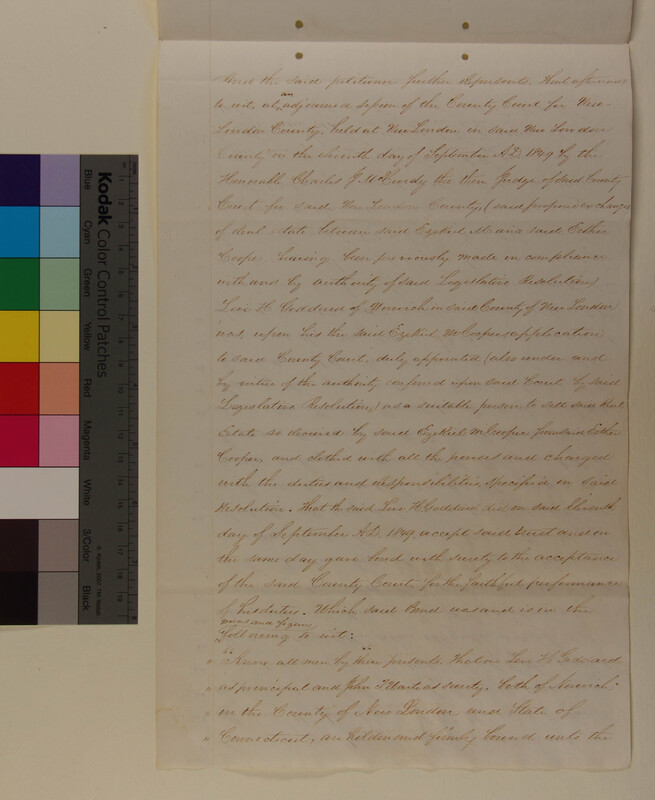 And the said petitioner further represents, that afterwards
to wit, at an adjourned session of the County Court for New
London County, held at New London in said New London
County on the eleventh day of September A.D. 1849 by the
Honorable Charles J. McCurdy the then Judge of said County
Court for said New London County, (said proposed exchanges
of real estate between said Ezekiel M and said Esther
Cooper having been previously made in compliance
with and by authority of said Legislative Resolution)
Levi H Goddard of Norwich in said County of New London
was, upon his the said Ezekiel M Coopers application
to said County Court, duly appointed (also under and
by virtue of the authority confered upon said Court by said
Legislative Resolution,) as a suitable person to sell said Real
Estate so received by said Ezekiel M Cooper from said Esther
Cooper, and clothed with all the powers and charged
with the duties and responsibilities specified in said
Resolution. That the said Levi H Goddard did on said Eleventh
day of September A.D. 1849, accept said trust and on
the same day gave bond with surety to the acceptance
of the said County Court for the faithful performance
of his duties. Which said Bond was and is in the
words and figures
following to wit:
"Know all men by these presents that we Levi H Goddard
" as principal and John T Waite as surety, both of Norwich,
" in the County of New London and State of
" Connecticut, are holden and firmly bound unto the
Kodak Color Control Patches
Blue
Cyan
Green
Yellow
Red
Magenta
White
3/Color
Black